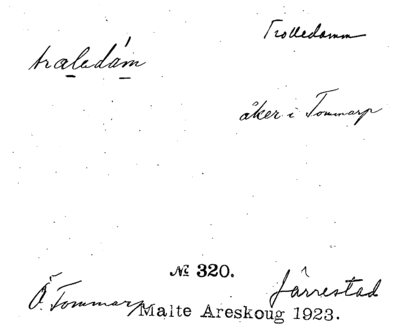 Trolledamm
traledám
åker i Tommarp
№ 320.
Ö. Tommarp
Järrestad
Malte Areskoug 1923.